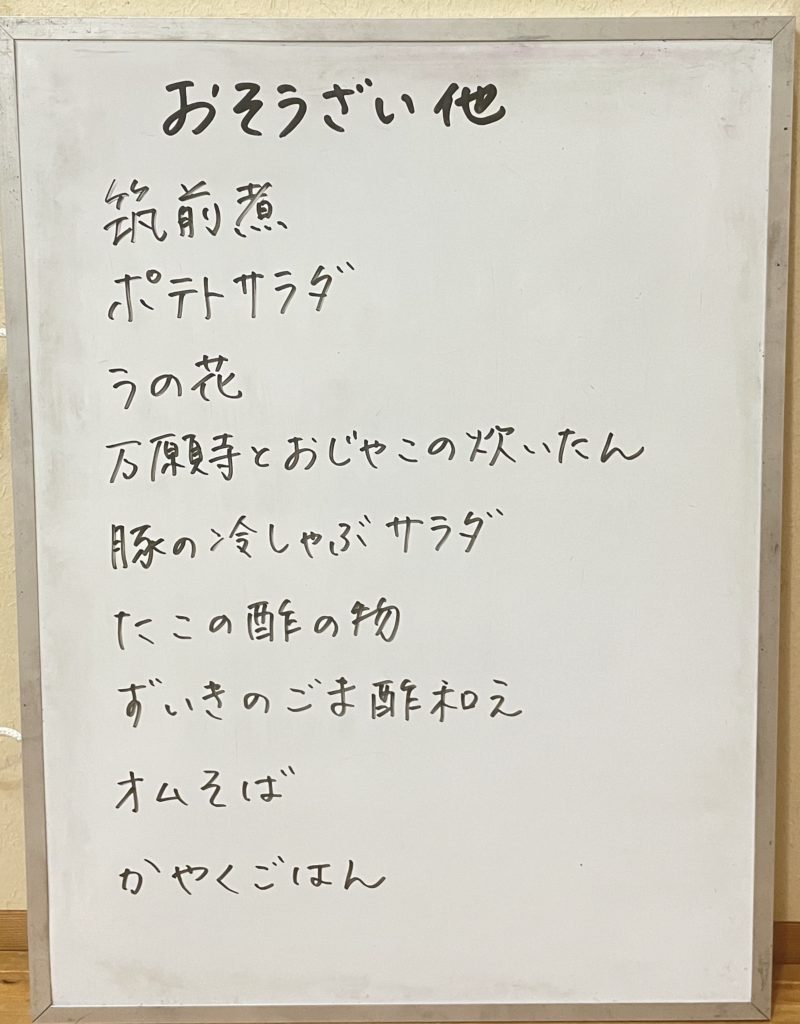 おそうざい他
筑前煮
ポテトサラダ
うの花
万願寺とおじゃこの炊いたん
豚の冷しゃぶサラダ
たこの酢の物
ずいきのごま酢和え
オムそば
かやくごはん